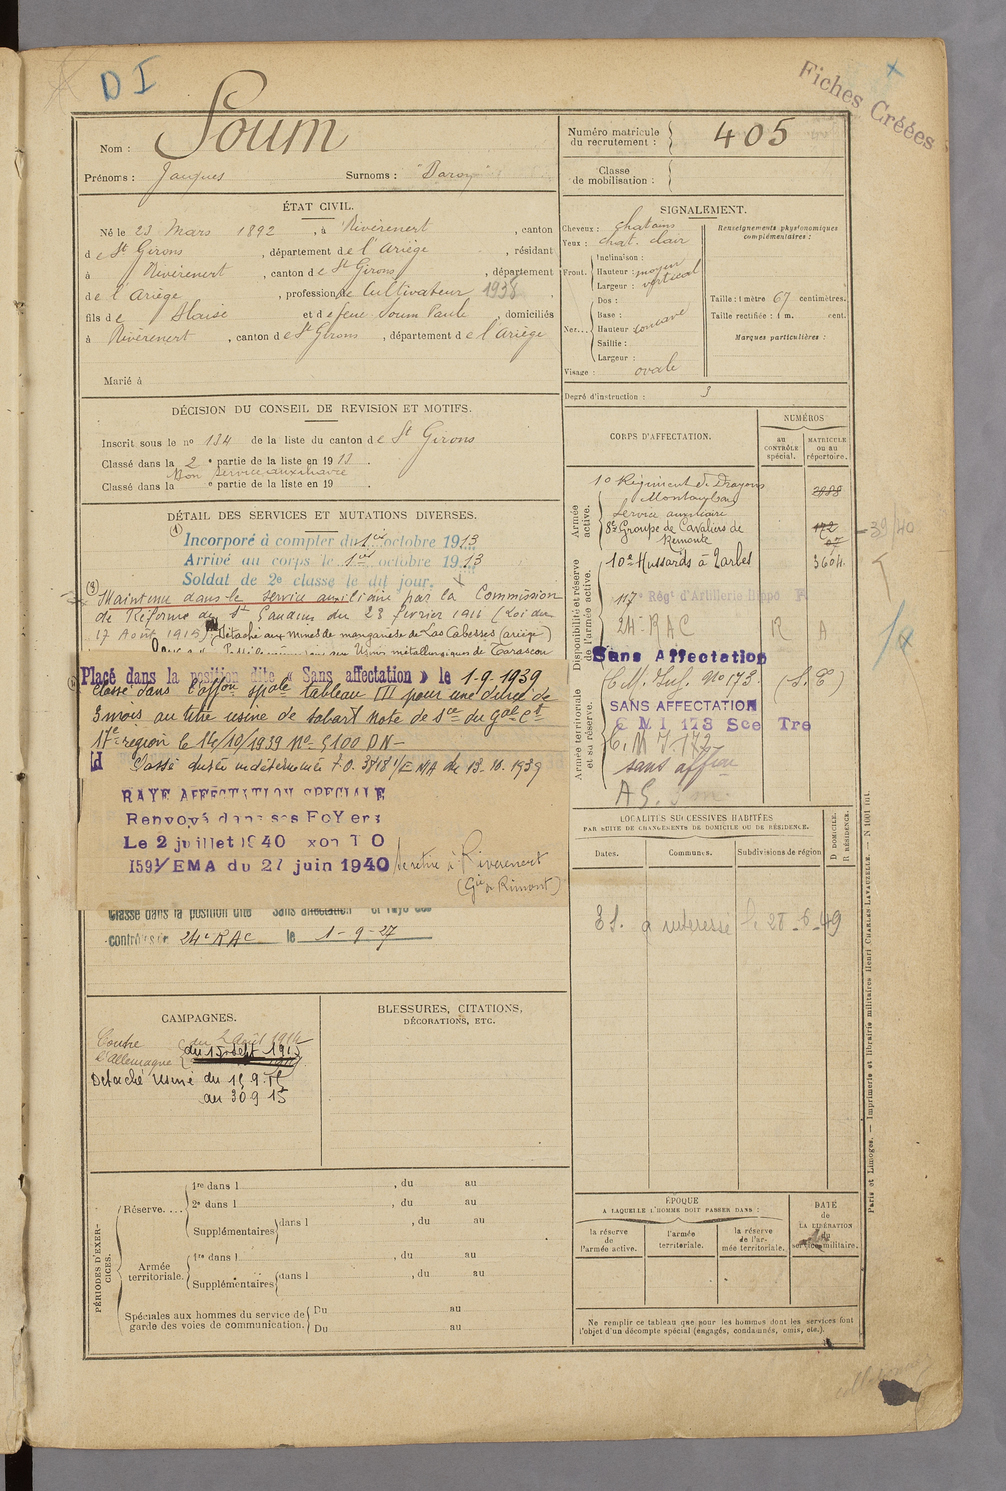 D I
Fiches Créées
Nom : Soum
Prénoms : Jacques Surnoms : "Baroy"
Numéro matricule du recrutement : 405
Classe de mobilisation :
ÉTAT CIVIL.
Né le 23 Mars 1892, à Rivèrenert, canton
de St Girons, département de l'Ariège, résidant
à Rivèrenert, canton de St Girons, département
de l'Ariège, profession de Cultivateur 1938
fils de Blaise et de feue Soum Paule, domiciliés
à Rivèrenert, canton de St Girons, département de l'Ariège
Marié à
SIGNALEMENT.
Cheveux : chatains
Yeux : chat. clair
Front. Inclinaison :
Hauteur : moyen
Largeur : vertical
Nez... Dos :
Base :
Hauteur concave
Saillie :
Largeur :
Visage : ovale
Renseignements physionomiques
complémentaires :
Taille : 1 mètre 67 centimètres.
Taille rectifiée : 1 m. cent.
Marques particulières :
Degré d'instruction : 3
DÉCISION DU CONSEIL DE REVISION ET MOTIFS.
Inscrit sous le no 134 de la liste du canton de St Girons
Classé dans la 2 e partie de la liste en 1913.
Bon service auxiliaire
Classé dans la e partie de la liste en 19
DÉTAIL DES SERVICES ET MUTATIONS DIVERSES.
(1)
Incorporé à compter du 1er octobre 1913
Arrivé au corps le 1er octobre 1913
Soldat de 2e classe le dit jour.
(3)
Maintenu dans le service auxiliaire par la Commission
de Réforme de St Gaudens du 23 février 1916 (Loi du
17 Août 1915). Détaché aux mines de manganèse de Las Cabesses (Ariège)
Usines métallurgiques de Tarascon
Placé dans la position dite « Sans affectation » le 1-9-1939
Classé dans l'affon spale tableau III pour une durée de
3 mois au titre usine de Sabart Note de sce du Gal Ct
17e région le 14/10/1939 No 5100 DN-
Id Passé durée indéterminée
RAYE AFFECTATION SPECIALE
Renvoyé dans ses Foyers
Le 2 juillet 1940
159 1/EMA du 27 juin 1940 se retire à Rivèrenert
(Gie de Rimont)
Classé dans la position dite "Sans affectation" et rayé des
contrôles du 24e RAC le 1-9-27
CORPS D'AFFECTATION.
NUMÉROS
au CONTRÔLE spécial.
MATRICULE ou au répertoire.
Armée active.
10e Régiment de Dragons
Montauban
Service auxiliaire
8e Groupe de Cavaliers de
Remonte
2988
172
39/40
Disponibilité et réserve de l'armée active.
10e Hussards à Tarbes 3604
117e Régt d'Artillerie Hippo R
24e RAC R A
Sans Affectation
Armée territoriale et sa réserve.
C. M. Inf. No 173. (S. T)
SANS AFFECTATION
C M I 173 Sce Tre
C. M I. 173
sans affon
LOCALITÉS SUCCESSIVES HABITÉES
PAR SUITE DE CHANGEMENTS DE DOMICILE OU DE RÉSIDENCE.
Dates. Communes. Subdivisions de région
D DOMICILE. R RÉSIDENCE.
le 28-6-49
CAMPAGNES.
Contre l'Allemagne
du 2 Août 1914
du 15 sept 1915
Détaché Usine du 15.9.15
au 30 9 15
BLESSURES, CITATIONS,
DÉCORATIONS, ETC.
PÉRIODES D'EXERCICES.
Réserve....
1re dans l , du au
2e dans l , du au
Supplémentaires dans l , du au
Armée territoriale.
1re dans l , du au
Supplémentaires dans l , du au
Spéciales aux hommes du service de garde des voies de communication.
Du au
Du au
ÉPOQUE
A LAQUELLE L'HOMME DOIT PASSER DANS :
la réserve de l'armée active.
l'armée territoriale.
la réserve de l'armée territoriale.
DATE de LA LIBÉRATION du service militaire.
Ne remplir ce tableau que pour les hommes dont les services font
l'objet d'un décompte spécial (engagés, condamnés, omis, etc.).
Paris et Limoges. — Imprimerie et librairie militaires Henri CHARLES-LAVAUZELLE. — N 1001 int.